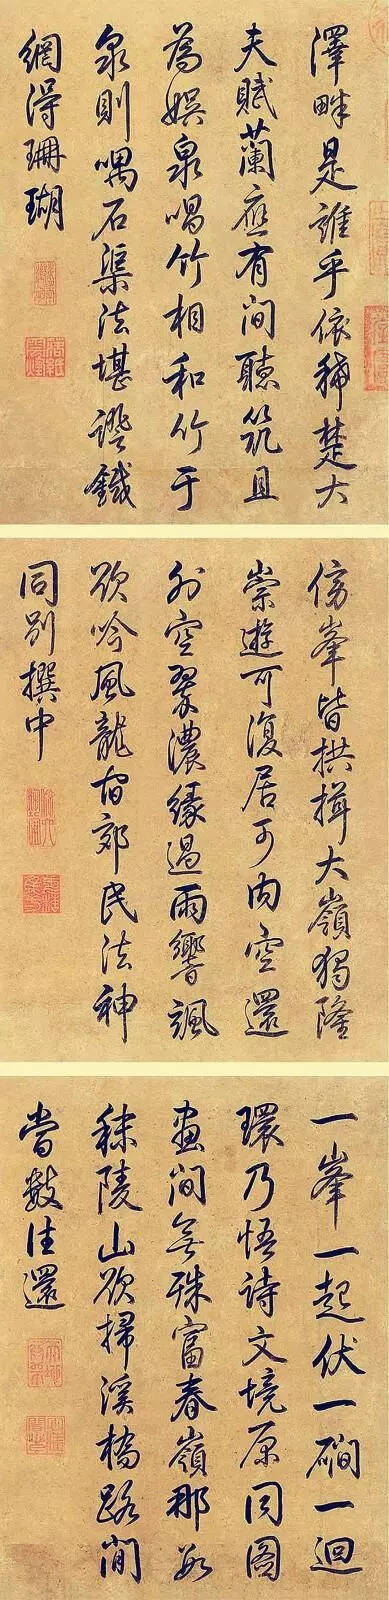 澤畔是誰乎依稀楚大
夫賦蘭應有間聽筑且
為娛泉唱竹相和竹于
泉則喁石渠法堪證鐵
網得珊瑚
傍峯皆拱揖大嶺獨隆
崇遊可復居可內空還
外空翠濃緣過雨響颯
欲吟風龍宿郊民法神
同別撰中
一峯一起伏一磵一迴
環乃悟詩文境原同圖
畫間無殊富春嶺那數
秣陵山欲掃溪橋路間
當數往還